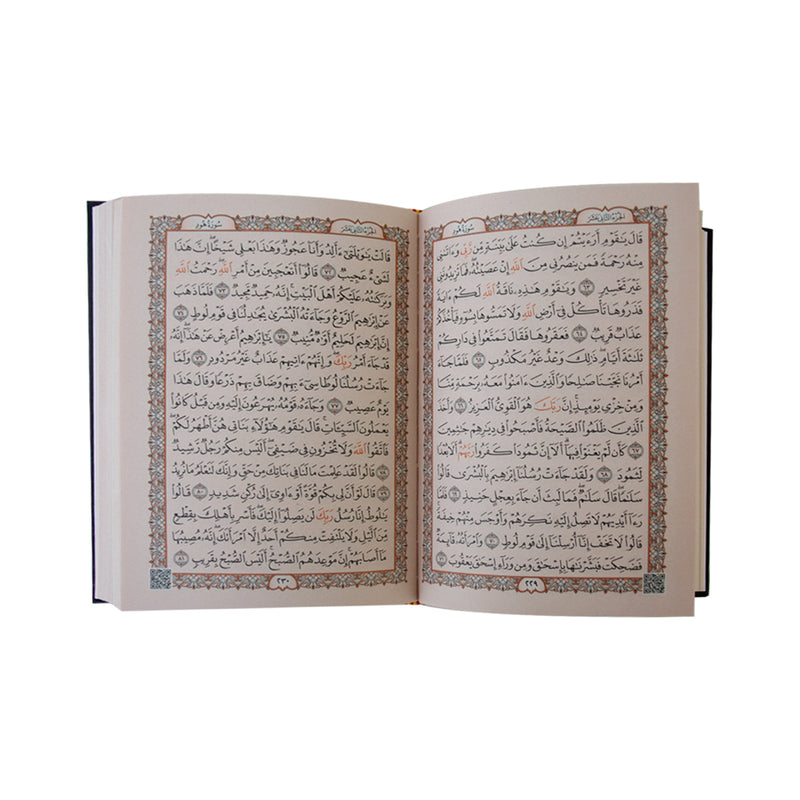 سُورَةُ هُود
الجُزءُ الثَّانِي عَشَرَ
قَالَ يَٰقَوْمِ أَرَءَيْتُمْ إِن كُنتُ عَلَىٰ بَيِّنَةٍ مِّن رَّبِّى وَءَاتَىٰنِى
مِنْهُ رَحْمَةً فَمَن يَنصُرُنِى مِنَ ٱللَّهِ إِنْ عَصَيْتُهُۥ فَمَا تَزِيدُونَنِى
غَيْرَ تَخْسِيرٍ ٦٣ وَيَٰقَوْمِ هَٰذِهِۦ نَاقَةُ ٱللَّهِ لَكُمْ ءَايَةً
فَذَرُوهَا تَأْكُلْ فِىٓ أَرْضِ ٱللَّهِ وَلَا تَمَسُّوهَا بِسُوٓءٍ فَيَأْخُذَكُمْ
عَذَابٌ قَرِيبٌ ٦٤ فَعَقَرُوهَا فَقَالَ تَمَتَّعُوا۟ فِى دَارِكُمْ
ثَلَٰثَةَ أَيَّامٍ ذَٰلِكَ وَعْدٌ غَيْرُ مَكْذُوبٍ ٦٥ فَلَمَّا جَآءَ
أَمْرُنَا نَجَّيْنَا صَٰلِحًا وَٱلَّذِينَ ءَامَنُوا۟ مَعَهُۥ بِرَحْمَةٍ مِّنَّا
وَمِنْ خِزْىِ يَوْمِئِذٍ إِنَّ رَبَّكَ هُوَ ٱلْقَوِىُّ ٱلْعَزِيزُ ٦٦ وَأَخَذَ
ٱلَّذِينَ ظَلَمُوا۟ ٱلصَّيْحَةُ فَأَصْبَحُوا۟ فِى دِيَٰرِهِمْ جَٰثِمِينَ
٦٧ كَأَن لَّمْ يَغْنَوْا۟ فِيهَآ أَلَآ إِنَّ ثَمُودَا۟ كَفَرُوا۟ رَبَّهُمْ أَلَا بُعْدًا
لِّثَمُودَ ٦٨ وَلَقَدْ جَآءَتْ رُسُلُنَآ إِبْرَٰهِيمَ بِٱلْبُشْرَىٰ قَالُوا۟
سَلَٰمًا قَالَ سَلَٰمٌ فَمَا لَبِثَ أَن جَآءَ بِعِجْلٍ حَنِيذٍ ٦٩ فَلَمَّا
رَءَآ أَيْدِيَهُمْ لَا تَصِلُ إِلَيْهِ نَكِرَهُمْ وَأَوْجَسَ مِنْهُمْ خِيفَةً
قَالُوا۟ لَا تَخَفْ إِنَّآ أُرْسِلْنَآ إِلَىٰ قَوْمِ لُوطٍ ٧٠ وَٱمْرَأَتُهُۥ قَآئِمَةٌ
فَضَحِكَتْ فَبَشَّرْنَٰهَا بِإِسْحَٰقَ وَمِن وَرَآءِ إِسْحَٰقَ يَعْقُوبَ ٧١
٢٢٩
سُورَةُ هُود
الجُزءُ الثَّانِي عَشَرَ
قَالَتْ يَٰوَيْلَتَىٰٓ ءَأَلِدُ وَأَنَا۠ عَجُوزٌ وَهَٰذَا بَعْلِى شَيْخًا إِنَّ هَٰذَا
لَشَىْءٌ عَجِيبٌ ٧٢ قَالُوٓا۟ أَتَعْجَبِينَ مِنْ أَمْرِ ٱللَّهِ رَحْمَتُ ٱللَّهِ
وَبَرَكَٰتُهُۥ عَلَيْكُمْ أَهْلَ ٱلْبَيْتِ إِنَّهُۥ حَمِيدٌ مَّجِيدٌ ٧٣ فَلَمَّا ذَهَبَ
عَنْ إِبْرَٰهِيمَ ٱلرَّوْعُ وَجَآءَتْهُ ٱلْبُشْرَىٰ يُجَٰدِلُنَا فِى قَوْمِ لُوطٍ ٧٤
إِنَّ إِبْرَٰهِيمَ لَحَلِيمٌ أَوَّٰهٌ مُّنِيبٌ ٧٥ يَٰٓإِبْرَٰهِيمُ أَعْرِضْ عَنْ هَٰذَآ إِنَّهُۥ
قَدْ جَآءَ أَمْرُ رَبِّكَ وَإِنَّهُمْ ءَاتِيهِمْ عَذَابٌ غَيْرُ مَرْدُودٍ ٧٦ وَلَمَّا
جَآءَتْ رُسُلُنَا لُوطًا سِىٓءَ بِهِمْ وَضَاقَ بِهِمْ ذَرْعًا وَقَالَ هَٰذَا
يَوْمٌ عَصِيبٌ ٧٧ وَجَآءَهُۥ قَوْمُهُۥ يُهْرَعُونَ إِلَيْهِ وَمِن قَبْلُ كَانُوا۟
يَعْمَلُونَ ٱلسَّيِّـَٔاتِ قَالَ يَٰقَوْمِ هَٰٓؤُلَآءِ بَنَاتِى هُنَّ أَطْهَرُ لَكُمْ
فَٱتَّقُوا۟ ٱللَّهَ وَلَا تُخْزُونِ فِى ضَيْفِىٓ أَلَيْسَ مِنكُمْ رَجُلٌ رَّشِيدٌ
٧٨ قَالُوا۟ لَقَدْ عَلِمْتَ مَا لَنَا فِى بَنَاتِكَ مِنْ حَقٍّ وَإِنَّكَ لَتَعْلَمُ مَا نُرِيدُ
٧٩ قَالَ لَوْ أَنَّ لِى بِكُمْ قُوَّةً أَوْ ءَاوِىٓ إِلَىٰ رُكْنٍ شَدِيدٍ ٨٠ قَالُوا۟
يَٰلُوطُ إِنَّا رُسُلُ رَبِّكَ لَن يَصِلُوٓا۟ إِلَيْكَ فَأَسْرِ بِأَهْلِكَ بِقِطْعٍ
مِّنَ ٱلَّيْلِ وَلَا يَلْتَفِتْ مِنكُمْ أَحَدٌ إِلَّا ٱمْرَأَتَكَ إِنَّهُۥ مُصِيبُهَا
مَآ أَصَابَهُمْ إِنَّ مَوْعِدَهُمُ ٱلصُّبْحُ أَلَيْسَ ٱلصُّبْحُ بِقَرِيبٍ ٨١
٢٣٠